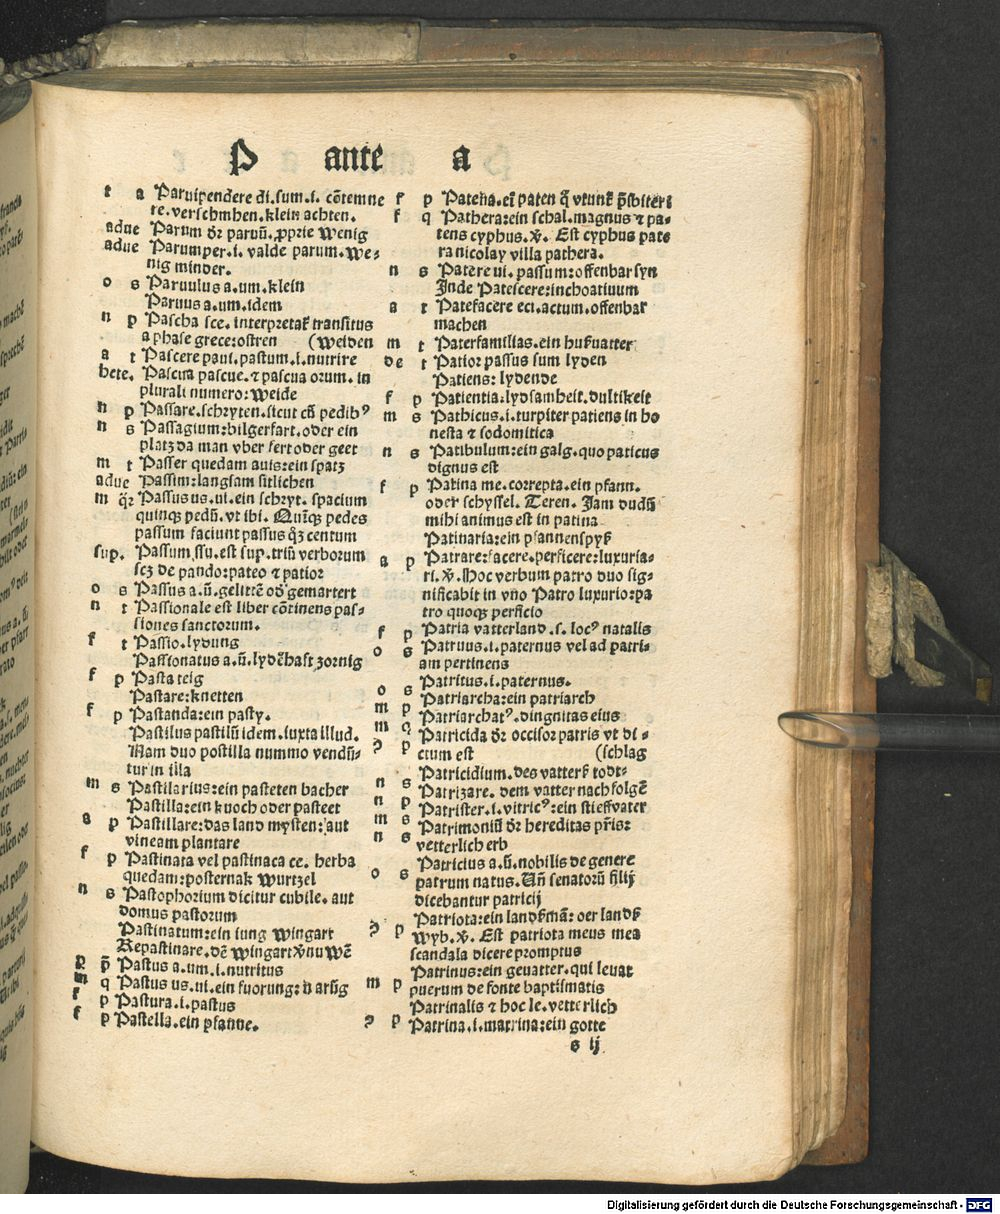 P ante a
t a Paruipendere di.sum.i. cõtemne
re.verschmhen.klein achten.
adue Parum õr paruũ.pprie wenig
adue Parumper.i. valde parum.we-
nig minder.
o s Paruulus a.um.klein
Paruus a.um.idem
n p Pascha sce. interpretaƭ transitus
a phase grece:ostren (weiden
a t Pascere paui.pastum.i.nutrire
hete. Pascua pascue.⁊ pascua orum. in
plurali numero:weide
n p Passare.schryten.sicut cũ pedibꝰ
n s Passagium:bilgerfart.oder ein
platz da man vber fert oder geet
m t Passer quedam auis:ein spatz
adue Passim:langsam sitlichen
m q̃r Passus us.ui.ein schryt. spacium
quinqꝫ pedũ.vt ibi. Quĩqꝫ pedes
passum faciunt passus qꝫ centum
sup. Passum.ssu.est sup.triũ verborum
scꝫ de pando:pateo ⁊ patior
o s Passus a.ũ.gelittẽ oď gemartert
n t Passionale est liber cõtinens pas-
siones sanctorum.
f t Passio.lydung
Passionatus a.ũ.lydẽhaft zornig
f p Pasta teig
Pastare:knetten
f p Pastanda:ein pasty.
Pastilus pastilũ idem.iuxta illud.
Nam duo postilla nummo vendũ-
tur in illa
m s Pastilarius:ein pasteten bacher
Pastilla:ein kuoch oder pasteet
a p Pastillare:das land mysten:aut
vineam plantare
f p Pastinata vel pastinaca ce. herba
quedam:posternak wurtzel
n s Pastophorium dicitur cubile.aut
domus pastorum
Pastinatum:ein iung wingart
Repastinare.dẽ wingart
p p̃ Pastus a.um.i.nutritus
m q Pastus us.ui.ein fuorung:
f p Pastura.i.pastus
f p Pastella.ein pfanne.
f p Patena.
f q Pathera:ein schal.magnus ⁊ pa-
tens cyphus.ꝟ. Est cyphus pate
ra nicolay villa pathera.
n s Patere ui. passum:offenbar syn
Inde Patescere:inchoatiuum
a t Patefacere eci.actum.offenbar
machen
m t Paterfamilias.ein hußuatter
de t Patior passus sum lyden
Patiens:lydende
f p Patientia:lydsamheit.dultikeit
m s Pathicus.i.turpiter patiens in ho
nesta ⁊ sodomitica
n s Patibulum:ein galg.quo paticus
dignus est
f p Patina me.correpta.ein pfann.
oder schyssel. Teren. Jam dudũ
mihi animus est in patina
Patinaria:ein pfannenspyß
a p Patrare:facere.perficere:luxuria-
ri.ꝟ. Hoc verbum patro duo sig-
nificabit in vno Patro luxurio:pa
tro quoqꝫ perficio
f p Patria vatterland.s.locꝰ natalis
o s Patruus.i.paternus vel ad patri-
am pertinens
o s Patritus.i.paternus.
m p Patriarcha:ein patriarch
m q Patriarchatꝰ.dingnitas eius
ꝯ p Patricida õr occisor patris vt di-
ctum est (schlag
n s Patricidium.des vatterß todt-
n p Patrizare. dem vatter nachfolgẽ
m s Patrister.i.vitricꝰ:ein stieffvater
n s Patrimoniũ õr hereditas pr̃is:
vetterlich erb
o s Patricius a.ũ.nobilis de genere
patrum natus.Uñ senatorũ filij
dicebantur patricij
ꝯ p Patriota:ein landßmã:oer landß
wyb.ꝟ. Est patriota meus mea
scandala dicere promptus
m p Patrinus:ein geuatter.qui leuat
puerum de fonte baptismatis
Patrinalis ⁊ hoc le.vetterlich
ꝯ p Patrina.i.matrina:ein gotte
s ij
Digitalisierung gefördert durch die Deutsche Forschungsgemeinschaft - DFG